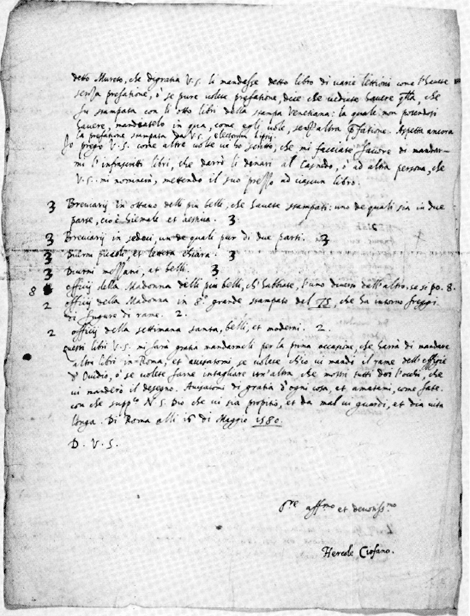 detto Mureto, che di gratia V.S. le mandasse detto libro di varie lettioni come l'havete
senza prefatione, ò se pure volete prefatione, dice che vediate havere che
fu stampata con li otto libri della stampa Venetiana: la quale non potendosi
havere, mandatelo in qua, come egli vole, senz'altra prefatione. Aspetta ancora
la prefatione stampata da V.S.
Io prego V.S. come altre volte vi ho scritto, che mi facciate favore di mandar-
mi l'infrascritti libri, che darò li denari al ò ad altra persona, che
V.S. mi nominerà, mettendo il suo prezzo ad ciascun libro.
3 Breviarij in ottavo delli più belli, che havete stampati: uno de quali sia in due
parte, cioè Hiemale et 3
3 Breviarij in sedeci, un de quali pur di due parti. 3
3 Diurni piccoli, et lettera chiara. 3
3 Diurni mezzani, et belli. 3
8 officij della Madonna delli più belli, ch'habbiate, l'uno diverso dall'altro, se si po. 8.
2 officij della Madonna in 8.º grande stampato del 75, che ha intorno freggi
di figure di rame. 2.
2 officij della settimana santa, belli, et moderni. 2.
Questi libri V.S. mi farà gratia mandarmeli per la prima occasione, che haverà di mandare
altri libri in Roma, et avisatemi se volete ch'io vi mandi il rame dell'effigie
d'Ovidio, ò se volete farne intagliare un'altra che mostri tutti doi l'occhi che
vi manderò il desegno. Avisatemi di gratia d'ogni cosa, et amatemi, come fate.
con che N.S. Dio che vi sia propitio, et da mal vi guardi, et dia vita
longa. Di Roma alli 16 di Maggio 1580.
D. V. S.
aff.mo et
Hercole Ciofano.